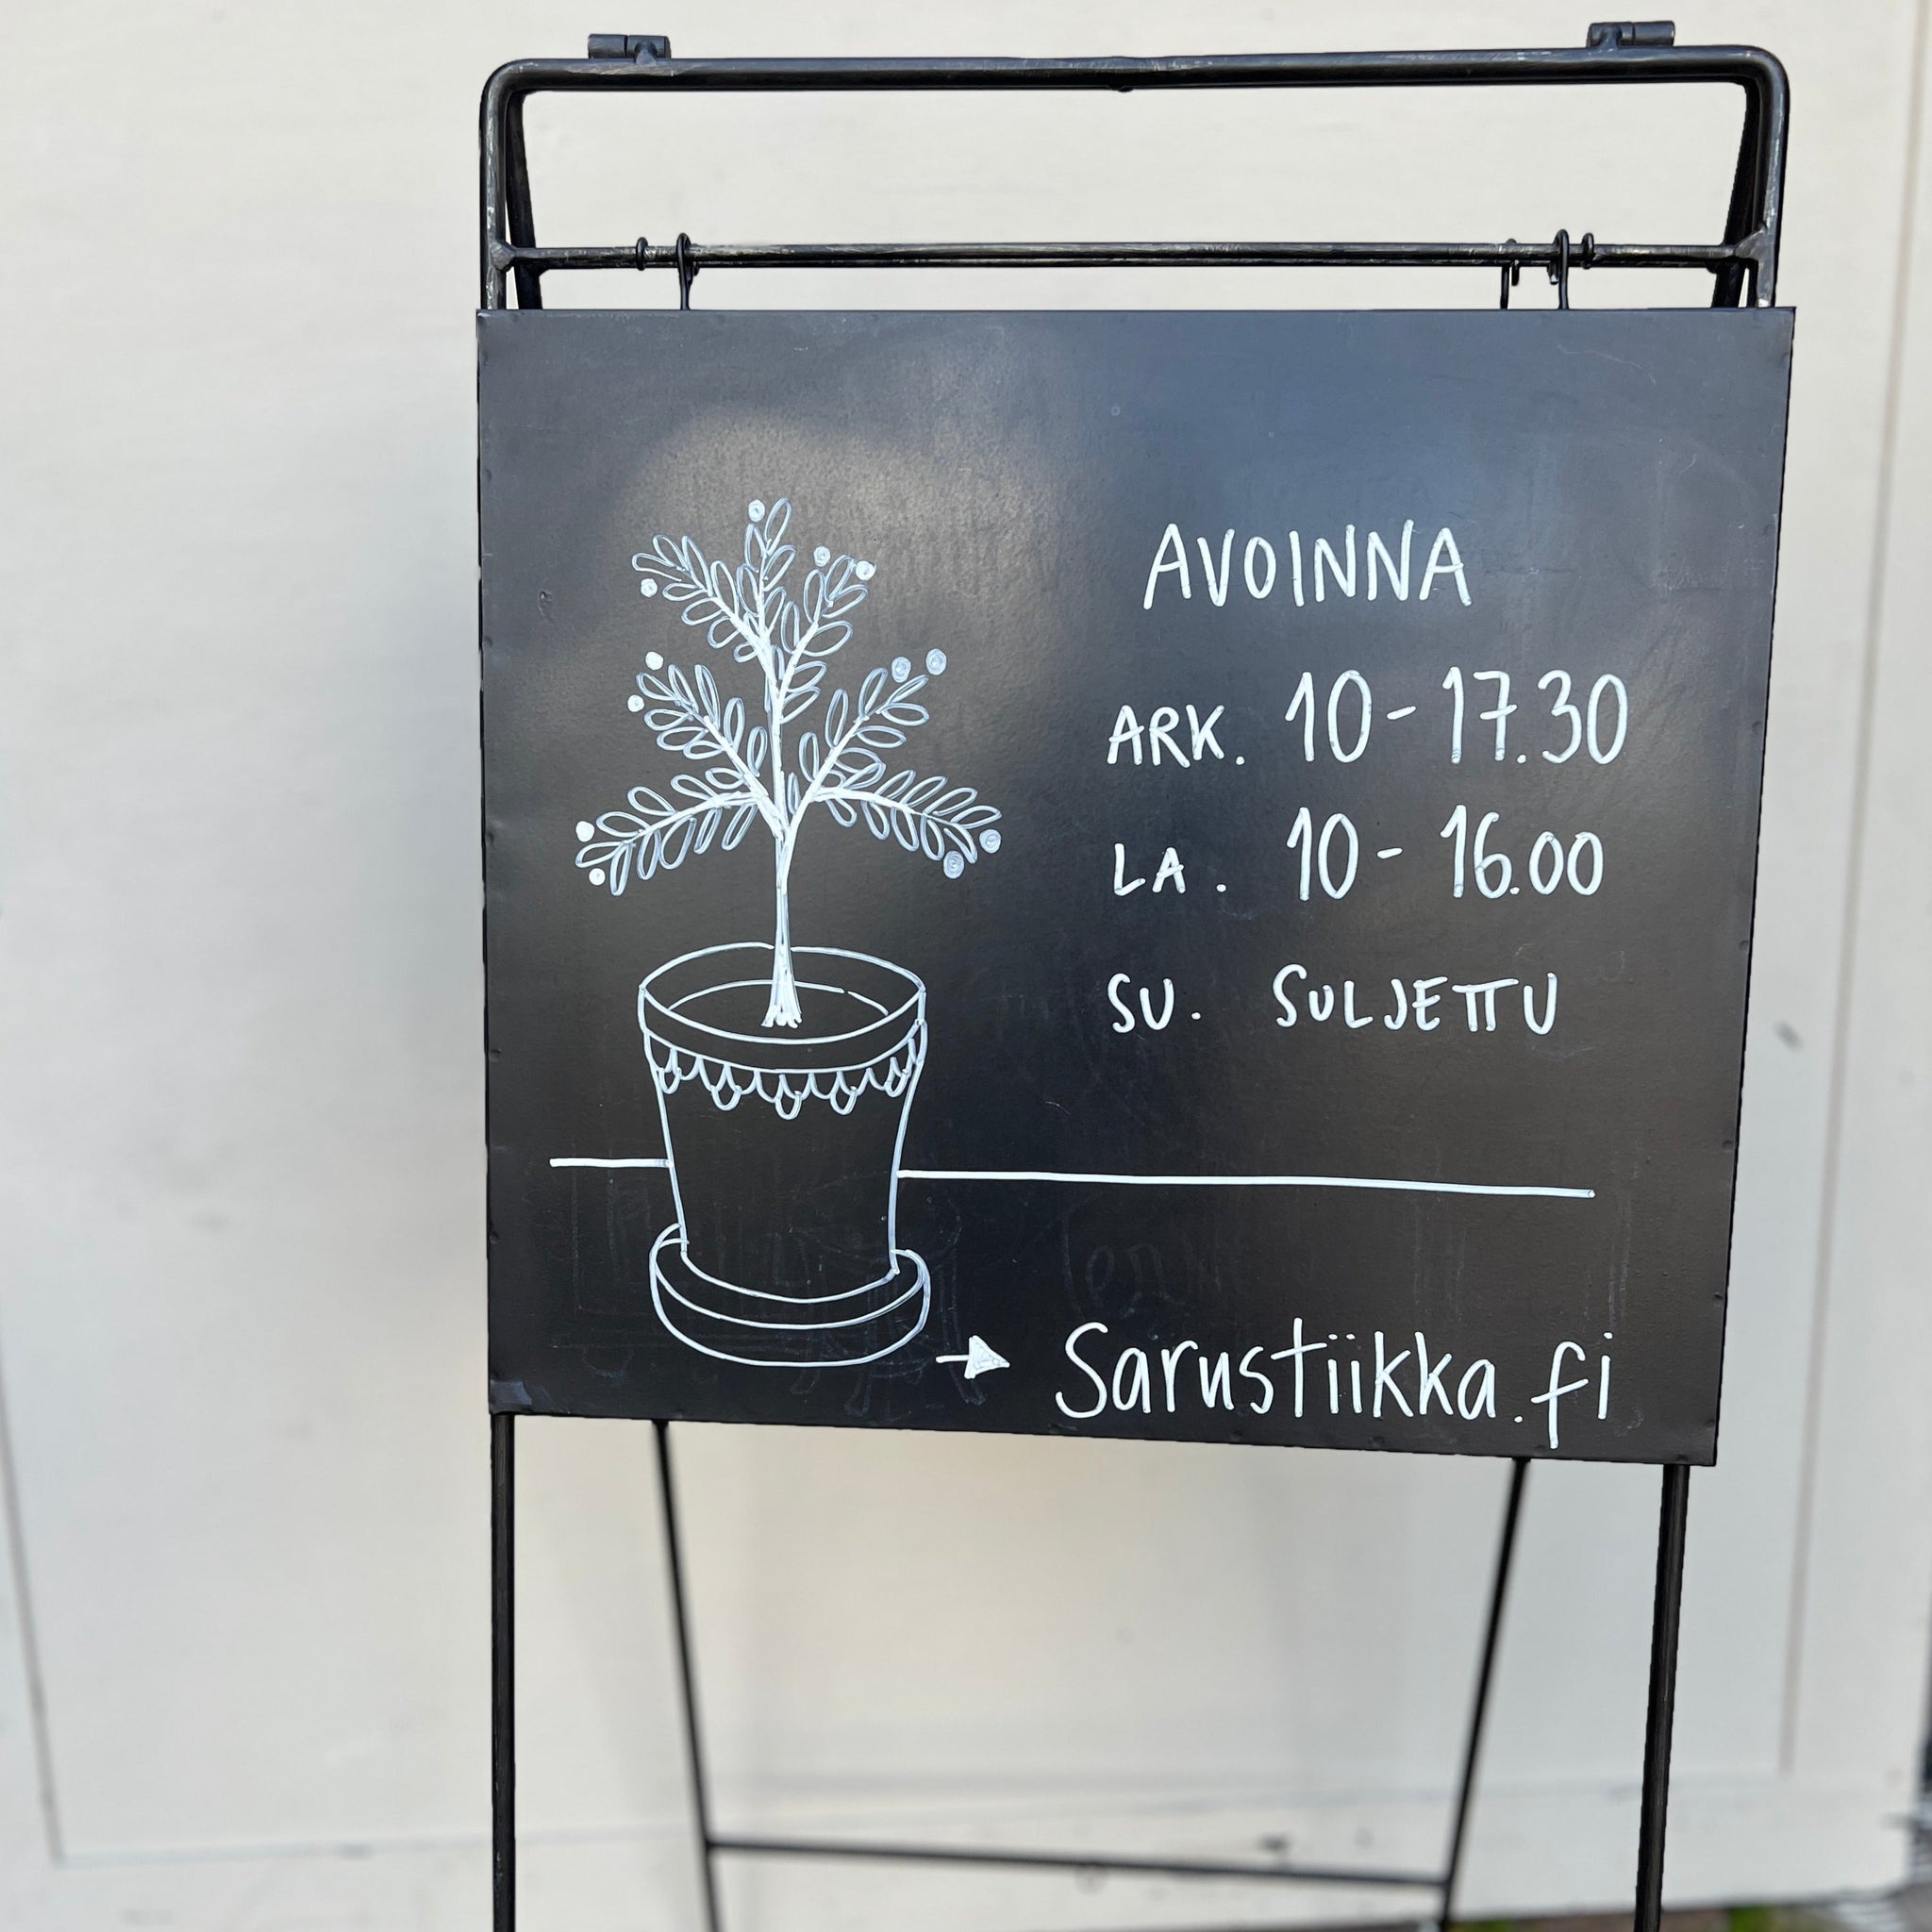 AVOINNA
ARK. 10 - 17.30
LA. 10 - 16.00
SU. SULJETTU
Sarustiikka.fi